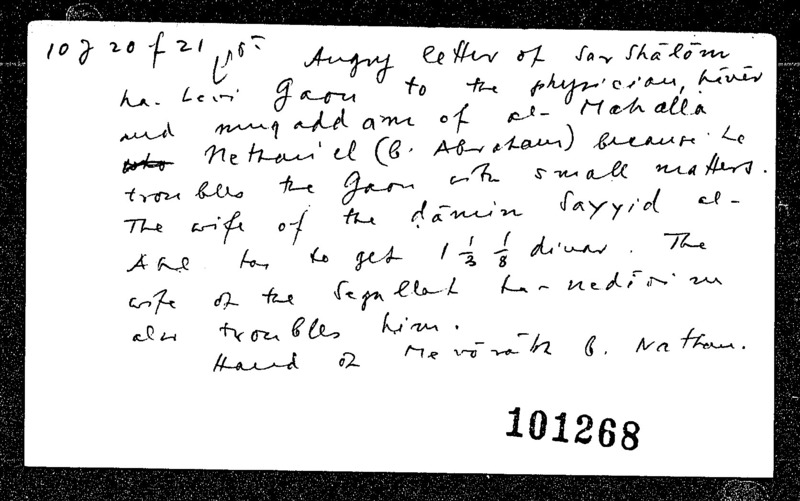 10 J 20 f 21 Angry letter of Sar Shālōm
ha-Levi Gaon to the physician, ḥāvēr
and muqaddam of al-Maḥalla
Nethan'el (b. Abraham) because he
troubles the Gaon with small matters.
The wife of the ḍāmin Sayyid al-
Ahl has to get 1 1/3 1/8 dinar. The
wife of the Segullat ha-nedīvīm
also troubles him.
Hand of Mevōrākh b. Nathan.
101268